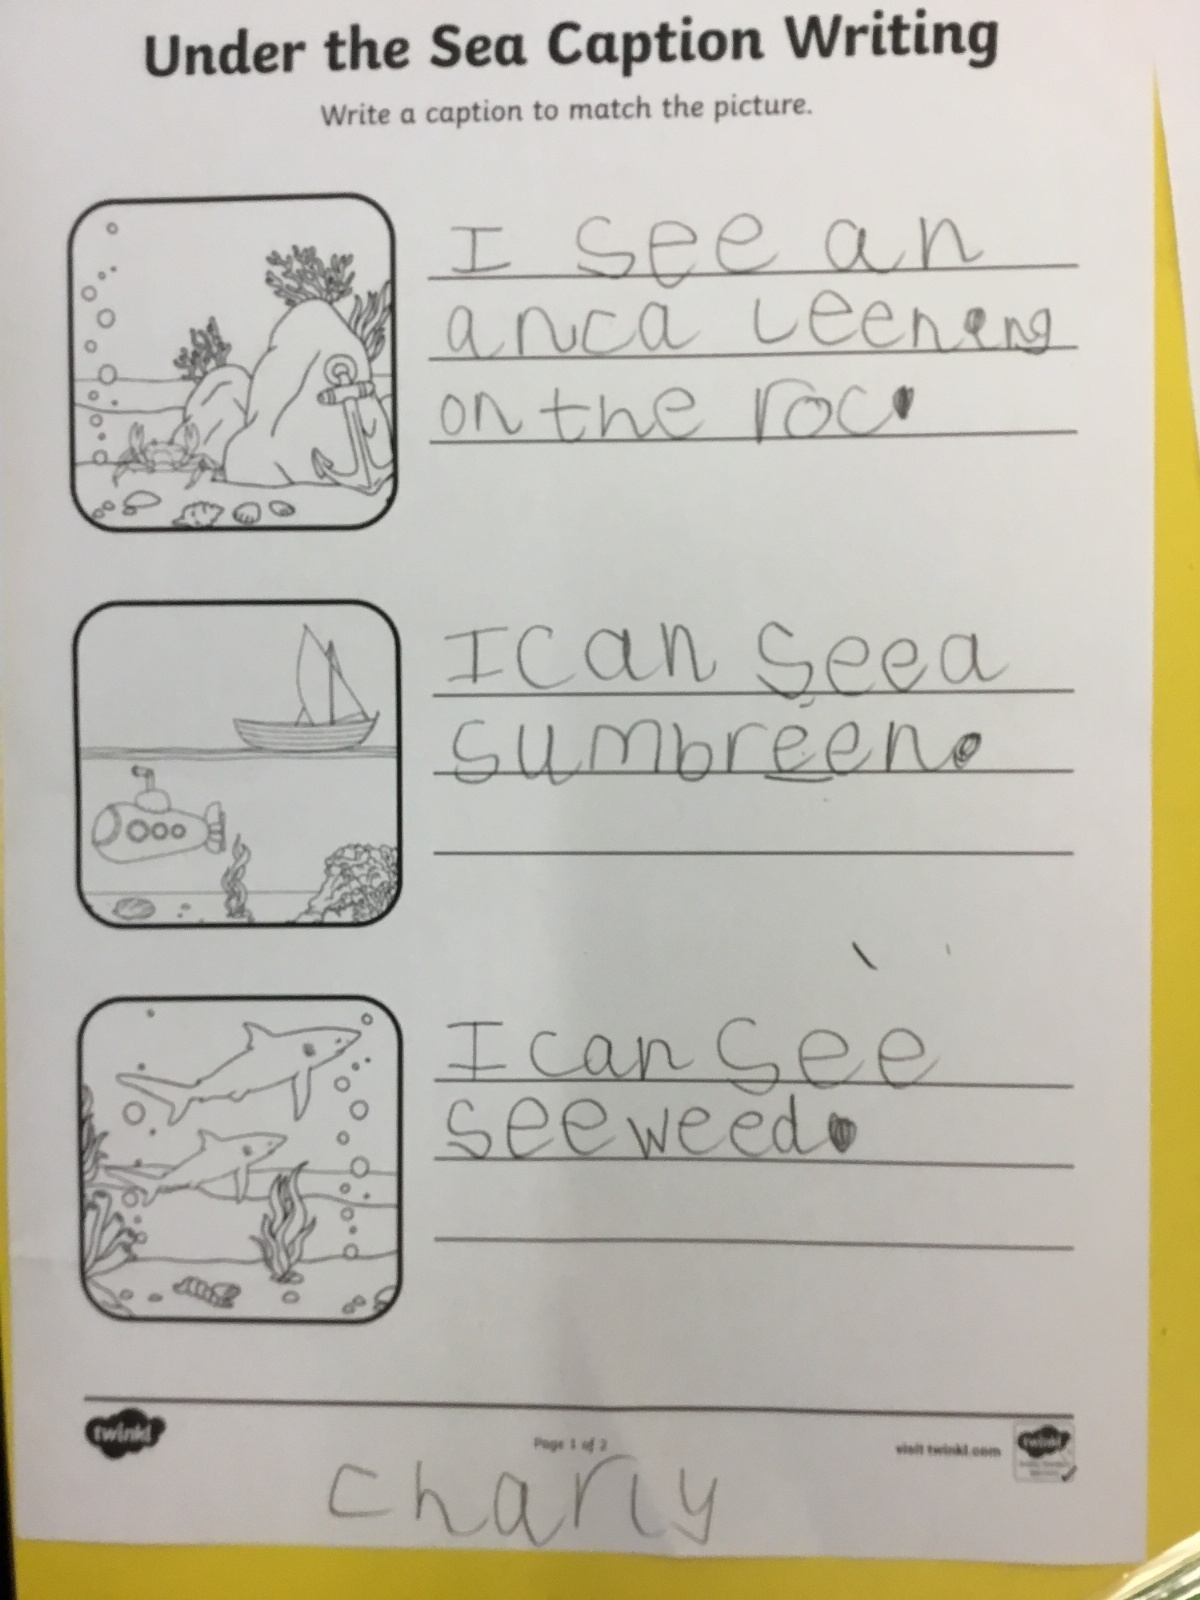 Under the Sea Caption Writing
Write a caption to match the picture.
I see an
anca leeneng
on the roc.
I can see a
sumbreen.
I can see
seeweed.
twinkl
Page 1 of 2
visit twinkl.com
twinkl
charly